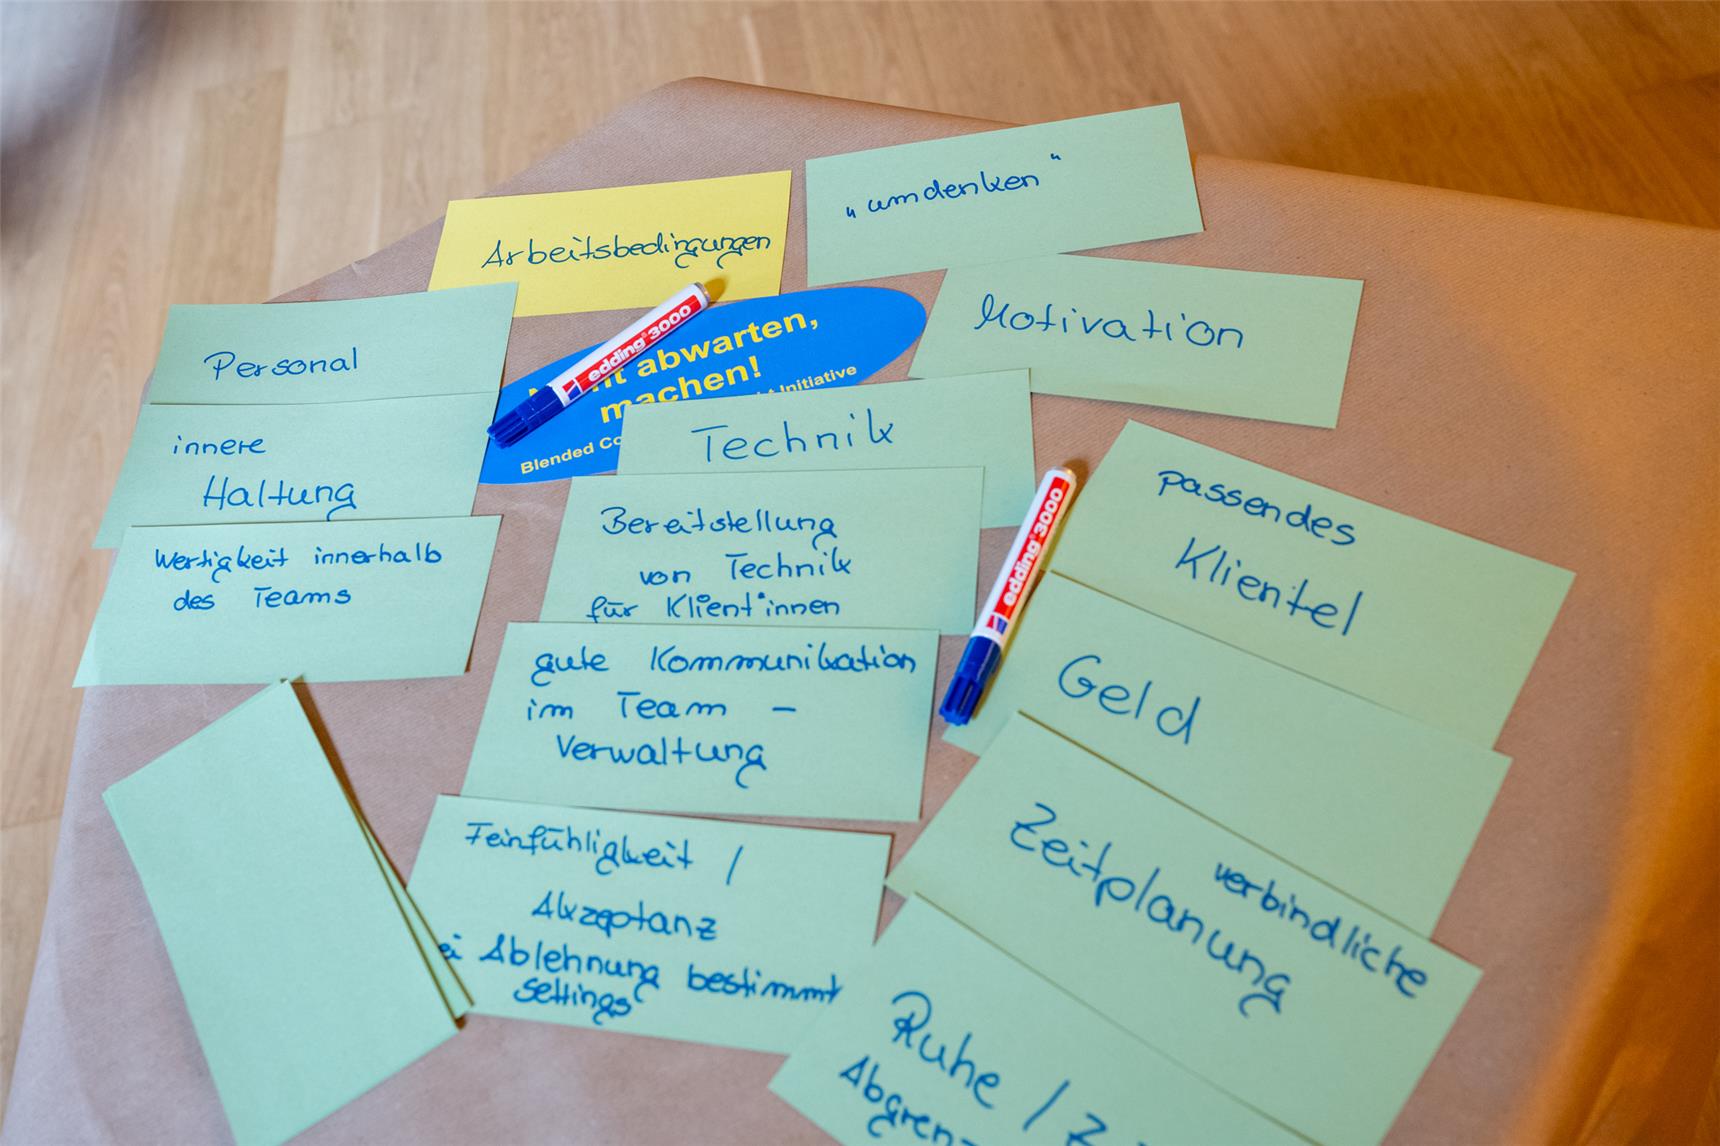 Arbeitsbedingungen
„umdenken“
Motivation
Personal
innere
Haltung
Wertigkeit innerhalb
des Teams
edding 3000
abwarten,
machen!
Initiative
Blended
Technik
Bereitstellung
von Technik
für Klient*innen
gute Kommunikation
im Team –
Verwaltung
Feinfühligkeit /
Akzeptanz
Ablehnung bestimmt
Settings
edding 3000
passendes
Klientel
Geld
verbindliche
Zeitplanung
Ruhe /